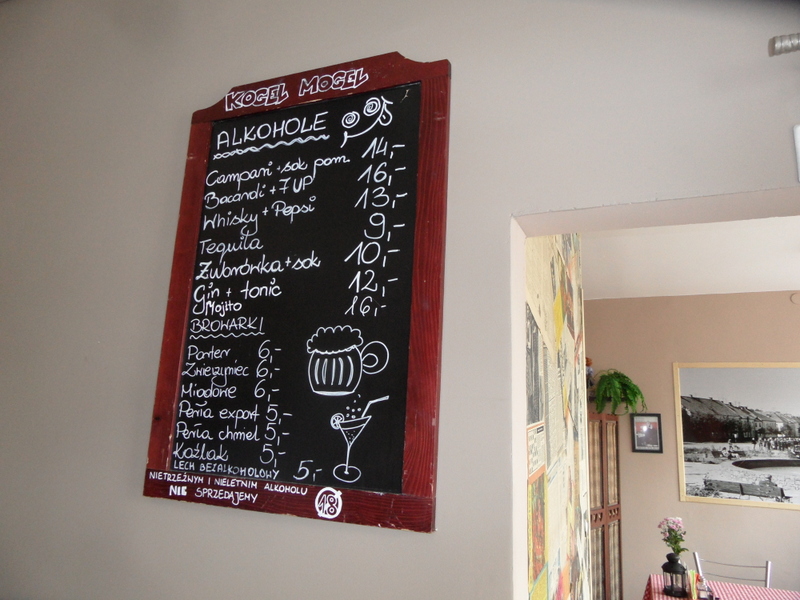 KOGEL MOGEL
ALKOHOLE
Campari + sok pom. 14,-
Bacardi + 7UP 16,-
Whisky + Pepsi 13,-
Tequila 9,-
Żubrówka + sok 10,-
Gin + tonic 12,-
Mojito 16,-
BROWARKI
Porter 6,-
Zwierzyniec 6,-
Miodowe 6,-
Perła export 5,-
Perła chmiel 5,-
Koźlak 5,-
LECH BEZALKOHOLOWY 5,-
NIETRZEŹWYM I NIELETNIM ALKOHOLU
NIE SPRZEDAJEMY 18